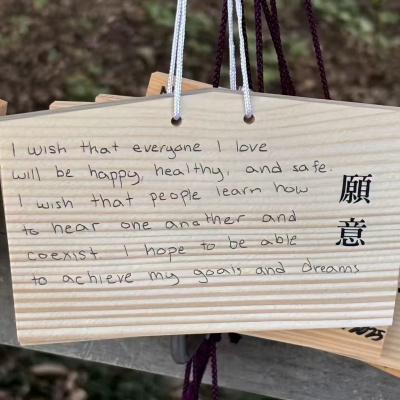 I wish that everyone I love
will be happy, healthy, and safe.
I wish that people learn how
to hear one another and
coexist. I hope to be able
to achieve my goals and dreams
願意